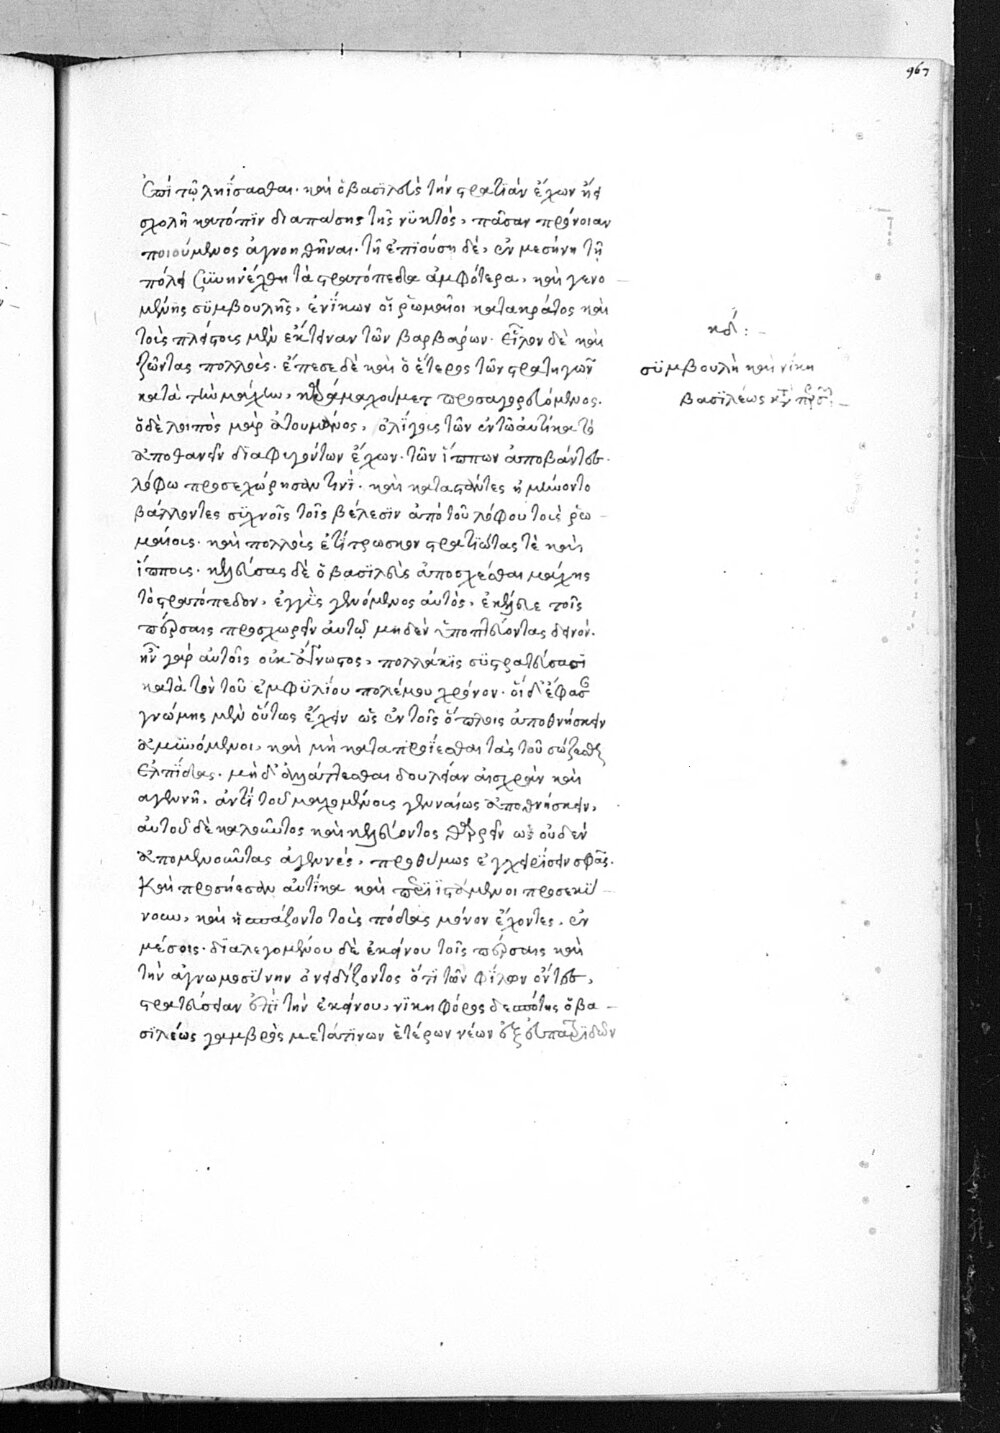 967
ἐπὶ τῷ ληΐσασθαι. καὶ ὁ βασιλεὺς τὴν στρατιὰν ἔχων ἤει
σχολῇ κατόπιν διαπάσης τῆς νυκτὸς, πᾶσαν πρόνοιαν
ποιούμενος ἀγνοηθῆναι. τῇ ἐπιούσῃ δὲ, ἐν μεσήνῃ τῇ
πόλει ξυνηνέχθη τὰ στρατόπεδα ἀμφότερα, καὶ γενο
μένης συμβουλῆς, ἐνίκων οἱ ῥωμαῖοι κατακράτος καὶ
τοὺς πλείστους μὲν ἔκτειναν τῶν βαρβάρων. εἷλον δὲ καὶ
ζῶντας πολλοὺς. ἔπεσε δὲ καὶ ὁ ἕτερος τῶν στρατηγῶν
κατὰ τὴν μάχην, προσαγορευόμενος.
ὁ δὲ λοιπὸς ὀλίγους τῶν ἐν τῶ αὐτίκα τὸ
ἀποθανεῖν διαφυγόντων ἔχων. τῶν ἵππων ἀποβάντες.
λόφω προσεχώρησάν τινι. καὶ καταστάντες ἠμύνοντο
βάλλοντες συχνοῖς τοῖς βέλεσιν ἀπὸ τοῦ λόφου τοὺς ῥω
μαίους. καὶ πολλοὺς ἐτίτρωσκον στρατιώτας τὲ καὶ
ἵππους. κελεύσας δὲ ὁ βασιλεὺς ἀποσχέσθαι μάχης
τὸ στρατόπεδον, ἐγγὺς γενόμενος αὐτὸς, ἐκέλευε τοῖς
πέρσαις προσχωρεῖν αὐτῷ μηδὲν ὑποπτεύοντας δεινόν.
ἦν γὰρ αὐτοῖς οὐκ ἄγνωστος, πολλάκις συστρατεύσασι
κατὰ τὸν τοῦ ἐμφυλίου πολέμου χρόνον. οἱ δ' ἔφασαν
γνώμης μὲν οὕτως ἔχειν ὡς ἐν τοῖς ὅπλοις ἀποθνήσκειν
ἀμυνόμενοι, καὶ μὴ καταπροΐεσθαι τὰς τοῦ σώζεσθαι
ἐλπίδας. μὴ δ' ἀλλάττεσθαι δουλείαν αἰσχρὰν καὶ
ἀγεννῆ, ἀντὶ τοῦ μαχομένους γενναίως ἀποθνήσκειν,
αὐτοῦ δὲ καλοῦντος καὶ κελεύοντος θαρρεῖν ὡς οὐδὲν
ἀπομενοῦντας ἀγεννές, προθύμως ἐγχειρίσειν σφᾶς.
Καὶ προσήεσαν αὐτίκα καὶ περιϊστάμενοι προσεκύ
νουν, καὶ ἠσπάζοντο τοὺς πόδας μόνον ἔχοντες, ἐν
μέσοις. διαλεγομένου δὲ ἐκείνου τοῖς πέρσαις καὶ
τὴν ἀγνωμοσύνην ὀνειδίζοντος ὅτι τῶν φίλων ὄντες,
στρατεύσειαν ἐπὶ τὴν ἐκείνου, νικηφόρος δεσπότης ὁ βα
σιλέως γαμβρὸς μετά τινων ἑτέρων νέων ἐξ εὐπατριδῶν
κδ΄:
συμβουλὴ καὶ νίκη
βασιλέως κατὰ περσῶν: